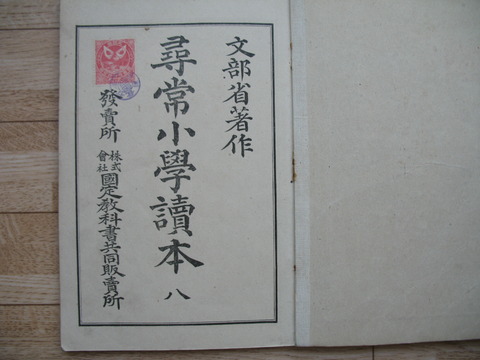 文部省著作
尋常小學讀本 八
發賣所 株式會社 國定敎科書共同販賣所